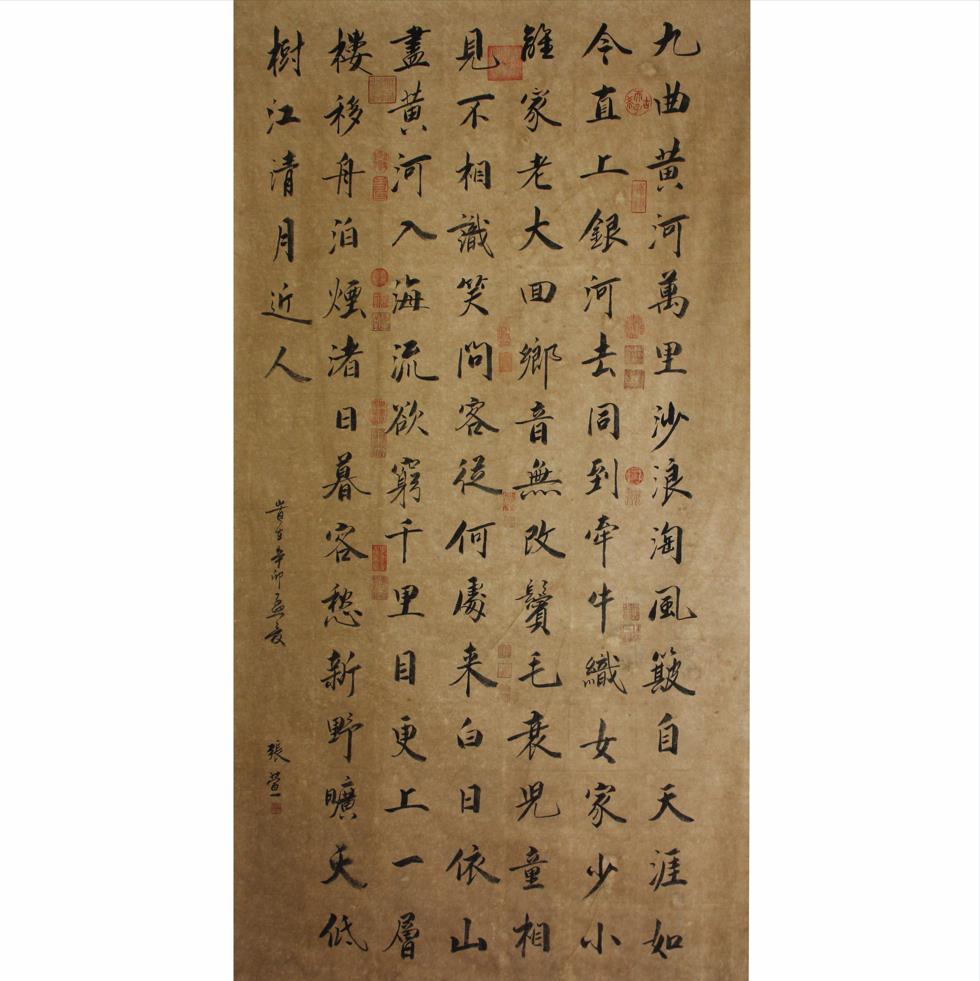 九曲黄河萬里沙浪淘風簸自天涯如
今直上銀河去同到牽牛織女家少小
離家老大回鄉音無改鬢毛衰児童相
見不相識笑問客從何處来白日依山
盡黄河入海流欲窮千里目更上一層
楼移舟泊煙渚日暮客愁新野曠天低
樹江清月近人
岁在辛卯孟夏
張